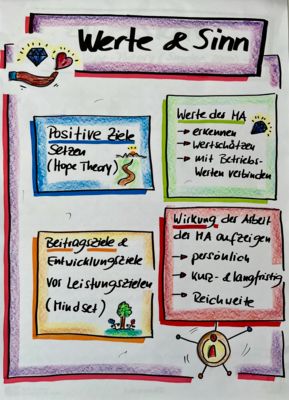 Werte & Sinn
Positive Ziele
Setzen
(Hope Theory)
Werte des MA
→ erkennen
→ wertschätzen
→ mit Betriebs-
Werten verbinden
Beitragsziele &
Entwicklungsziele
vor Leistungszielen
(Mindset)
Wirkung der Arbeit
der MA aufzeigen
→ persönlich
→ Kurz- & langfristig
→ Reichweite